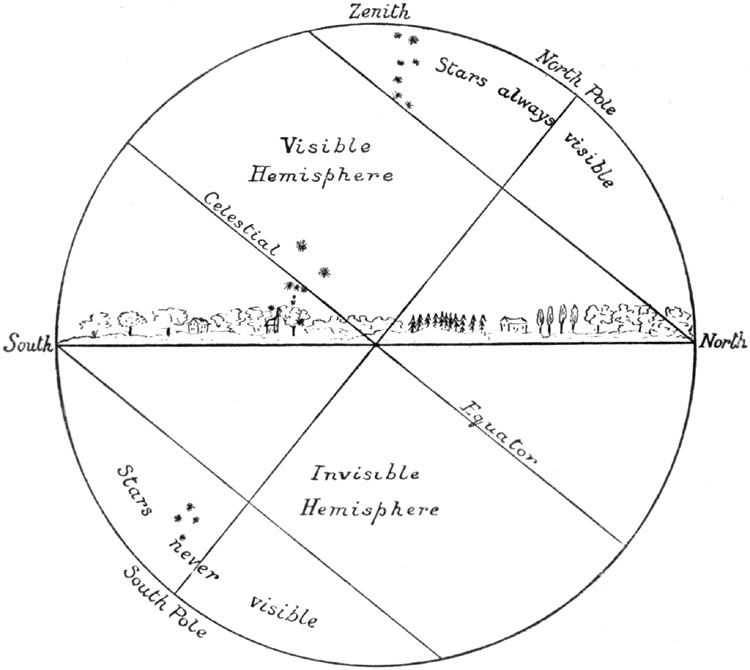 Zenith
North Pole
Stars always
visible
Visible
Hemisphere
Celestial
South
North
Equator
Invisible
Hemisphere
Stars
never
visible
South Pole